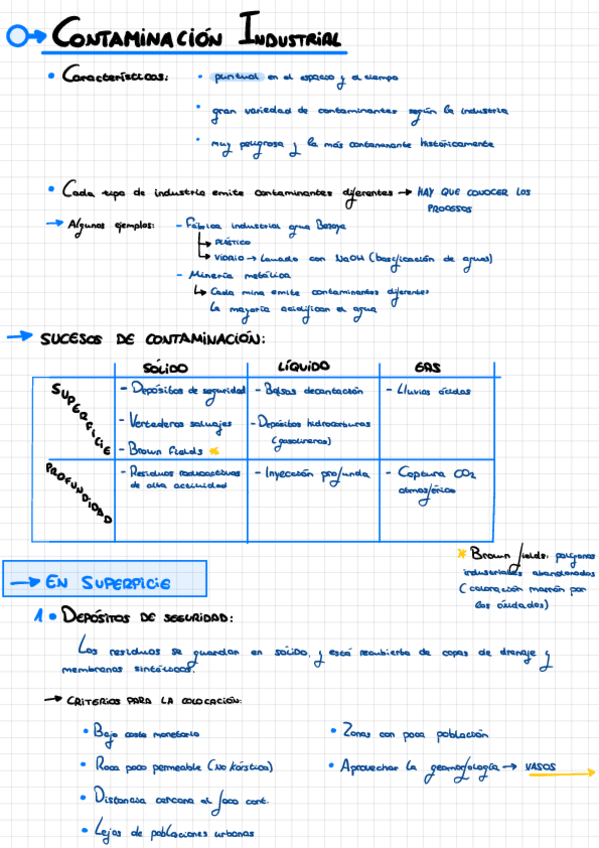 CONTAMINACIÓN INDUSTRIAL
• Características:
• puntual en el espacio y el tiempo
• gran variedad de contaminantes según la industria
• muy peligrosa y la más contaminante históricamente
• Cada tipo de industria emite contaminantes diferentes → HAY QUE CONOCER LOS
PROCESOS
→ Algunos ejemplos:
- Fábrica industrial agua Bezoya
↳ PLÁSTICO
↳ VIDRIO → Lavado con NaOH (basificación de aguas)
- Minería metálica
↳ Cada mina emite contaminantes diferentes
La mayoría acidifican el agua
→ SUCESOS DE CONTAMINACIÓN:
SÓLIDO LÍQUIDO GAS
SUPERFICIE
- Depósitos de seguridad - Balsas decantación - Lluvias ácidas
- Vertederos salvajes - Depósitos hidrocarburos
(gasolineras)
- Brown fields *
PROFUNDIDAD
- Residuos radioactivos - Inyección profunda - Captura CO2
de alta actividad atmosférico
* Brown fields: polígonos
industriales abandonados
(coloración marrón por
los óxidados)
→ EN SUPERFICIE
1 • DEPÓSITOS DE SEGURIDAD:
Los residuos se guardan en sólido, y está recubierto de capas de drenaje y
membranas sintéticas.
→ CRITERIOS PARA LA COLOCACIÓN:
• Bajo coste monetario
• Roca poco permeable (No kárstica)
• Distancia cercana al foco cont.
• Lejos de poblaciones urbanas
• Zonas con poca población
• Aprovechar la geomorfología → VASOS